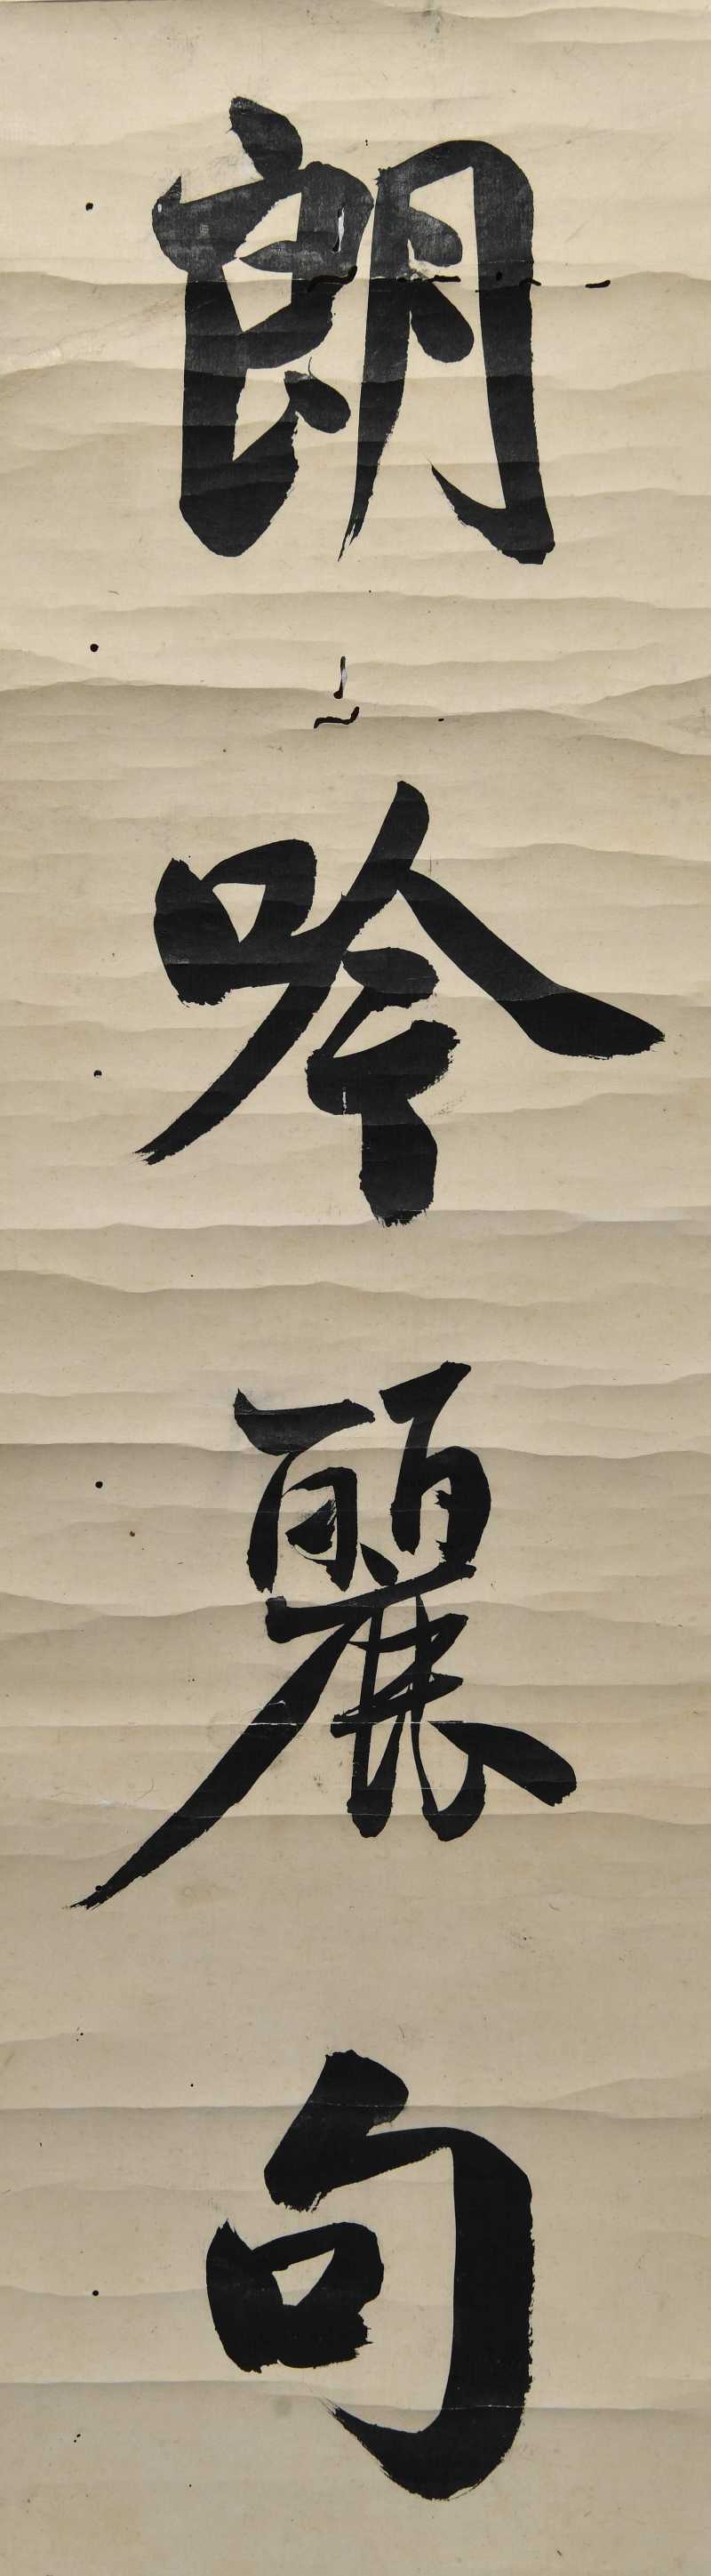 朗吟麗句